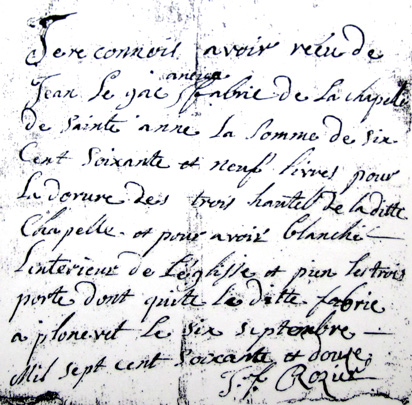 Je reconnois avoir reçu de
Jean Le gac ancien fabric de La chapelle
de Sainte anne La Somme de Six
Cent Soixante et neuf Livres pour
La dorure des trois hautels de la ditte
Chapelle et pour avoir blanchi
Linterieur de Léglisse et pien les trois
porte dont quitte le ditte fabric
a plonevet le Six Septembre
Mil sept cent Soixante et douze
J. f. Rozuc